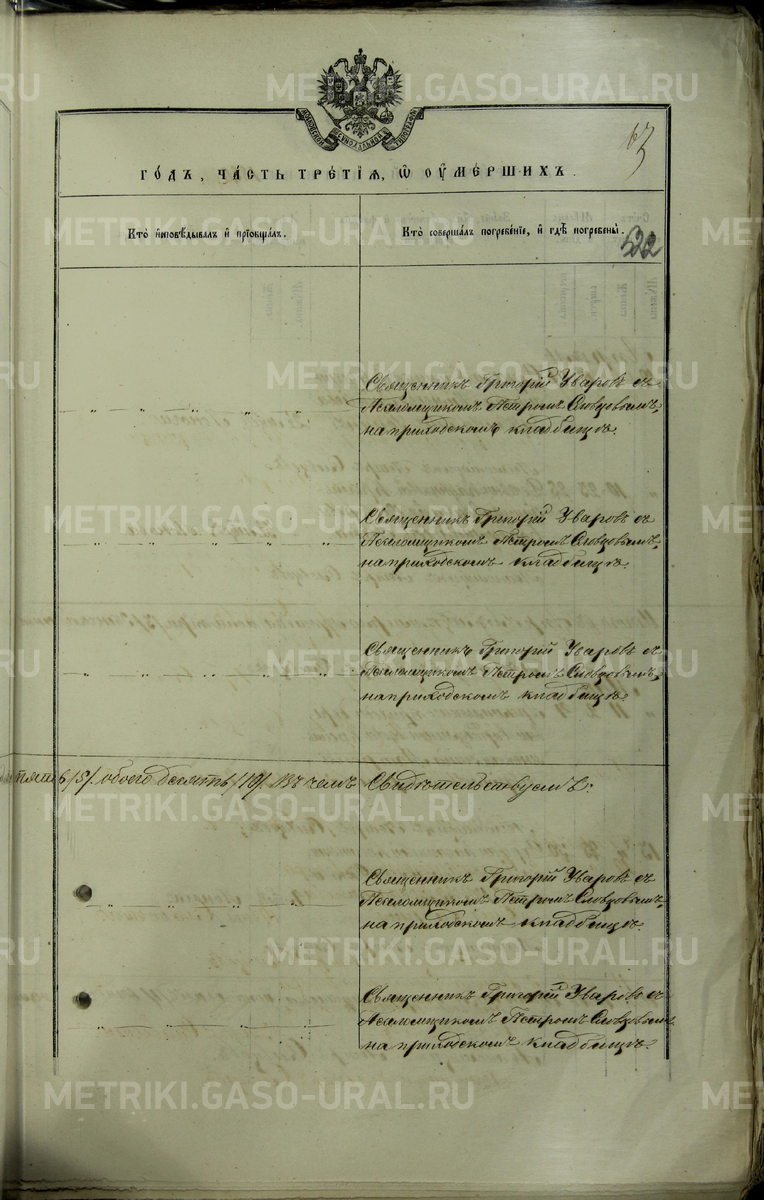 METRIKI.GASO-URAL.RU
МОСКОВСКОЙ СѴНОДАЛЬНОЙ ТИПОГРАФІИ
63
ГОДЪ, ЧАСТЬ ТРЕТІЯ, Ѽ ОУМЕРШИХЪ.
Кто исповѣдывалъ и пріобщалъ.
Кто совершалъ погребеніе, и гдѣ погребены.
522
Священникъ Григорій Уваровъ съ
Псаломщикомъ Петромъ Словцовымъ,
на приходскомъ кладбищѣ.
Священникъ Григорій Уваровъ съ
Псаломщикомъ Петромъ Словцовымъ,
на приходскомъ кладбищѣ.
Священникъ Григорій Уваровъ съ
Псаломщикомъ Петромъ Словцовымъ,
на приходскомъ кладбищѣ.
пять /5/. обоего десять /10/. Въ чемъ Свидѣтельствуемъ:
Священникъ Григорій Уваровъ съ
Псаломщикомъ Петромъ Словцовымъ,
на приходскомъ кладбищѣ.
Священникъ Григорій Уваровъ съ
Псаломщикомъ Петромъ Словцовымъ
на приходскомъ кладбищѣ.